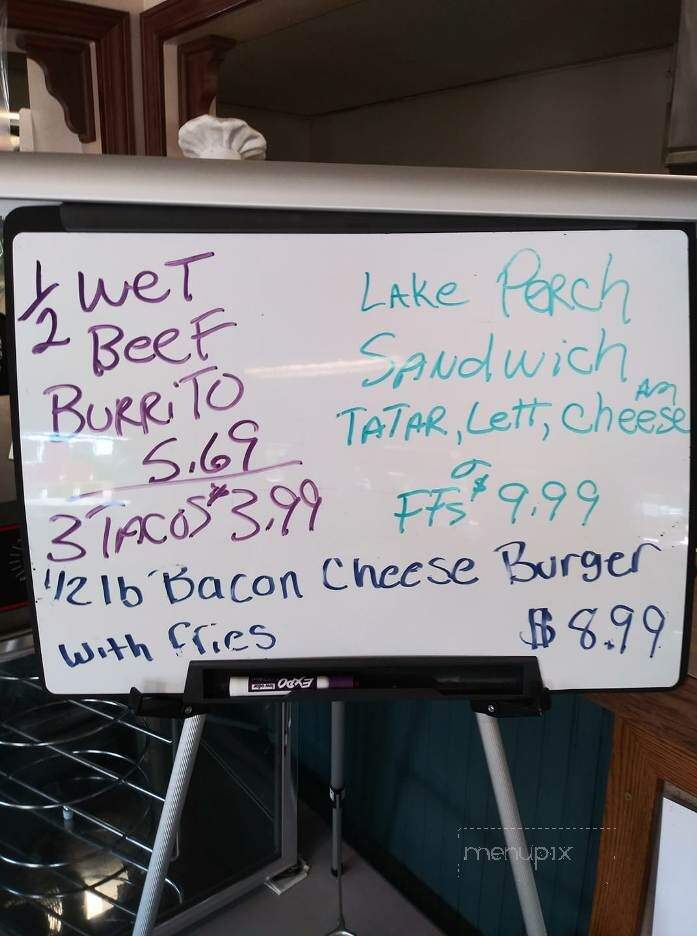 1/2 Wet
Beef
Burrito
5.69
3 Tacos $3.99
Lake Perch
Sandwich
Am
Tatar, Lett, Cheese
FFs $9.99
1/2 lb Bacon Cheese Burger
with fries $8.99
EXPO
menupix